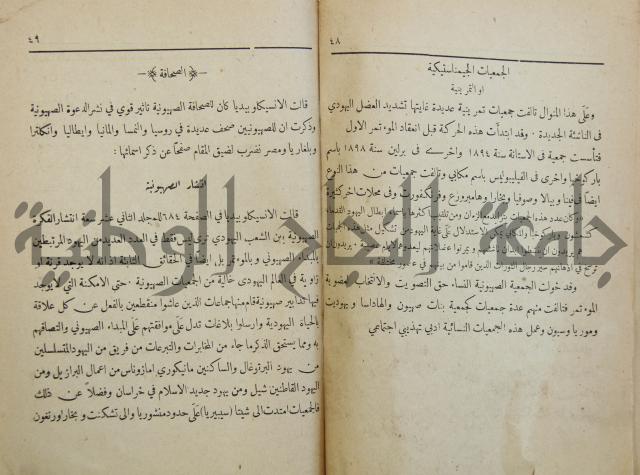 ٤٨
الجمعيات الجيمناستيكية
او التمرينية
وعلى هذا المنوال تالفت جمعيات تمرينية عديدة غايتها تشديد العضل اليهودي
في الناشئة الجديدة . وقد ابتدأت هذه الحركة قبل انعقاد المؤتمر الاول
فتأسست جمعية في الاستانة سنة ١٨٩٤ واخرى في برلين سنة ١٨٩٨ باسم
باركوخبا واخرى في الفيليبوليس باسم مكابي وتالفت جمعيات من هذا النوع
ايضاً في فينا وبالا وصوفيا وهامبورغ وفرنكفورت وفي محلات اخر كثيرة
وكان عدد هذه الجمعيات
ترسخ في اذهانهم سير رجال الثورات الذين قاموا من بينهم في
وقد خولت الجمعية الصهيونية النساء حق التصويت والانتخاب لعضوية
المؤتمر فتالفت منهم عدة جمعيات كجمعية بنات صهيون والهاداسا ويهوديت
وموريا وسيون وعمل هذه الجمعيات النسائية ادبي تهذيبي اجتماعي
٤٩
الصحافة
قالت الانسيكلوبيديا كان للصحافة الصهيونية تاثير قوي في نشر الدعوة الصهيونية
وذكرت ان للصهيونيين صحف عديدة في روسيا والنمسا والمانيا وايطاليا وانكلترا
وبلغاريا ومصر نضرب لضيق المقام صفحاً عن ذكر اسمائها :
انتشار الصهيونية
قالت الانسيكلوبيديا في الصفحة ٦٨٤ للمجلد الثاني عشر سعة انتشار الفكرة
الصهيونية بين الشعب اليهودي ترى ليس فقط في العدد العديد من اليهود المرتبطين
بالمبدأ الصهيوني وبالمؤتمر بل ايضاً في الحقائق الثابتة اذ انه لا يوجد قرنة او
زاوية في العالم اليهودي خالية من الجمعيات الصهيونية . حتى الامكنة التي لا يوجد
فيها تدابير صهيونية قام منها جماعات الذين عاشوا منقطعين بالفعل عن كل علاقة
بالحياة اليهودية وارسلوا بلاغات تدل على موافقتهم على المبدأ الصهيوني والتصاقهم
به ومما يستحق الذكر ما جاء من المخابرات والتبرعات من فريق من اليهود المتسلسلين
من يهود البرتوغال والساكنين مانيكوري امازوناس من اعمال البرازيل ومن
اليهود القاطنين شيل ومن يهود جديد الاسلام في خراسان وفضلاً عن ذلك
فالجمعيات امتدت الى شيتا (سيبيريا) على حدود منشوريا والى تشكنت و بخارا ورنغون
جامعة النجاح الوطنية